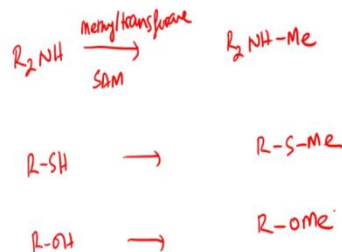 R₂NH methyltransferase → R₂NH-Me
SAM
R-SH → R-S-Me
R-OH → R-OMe